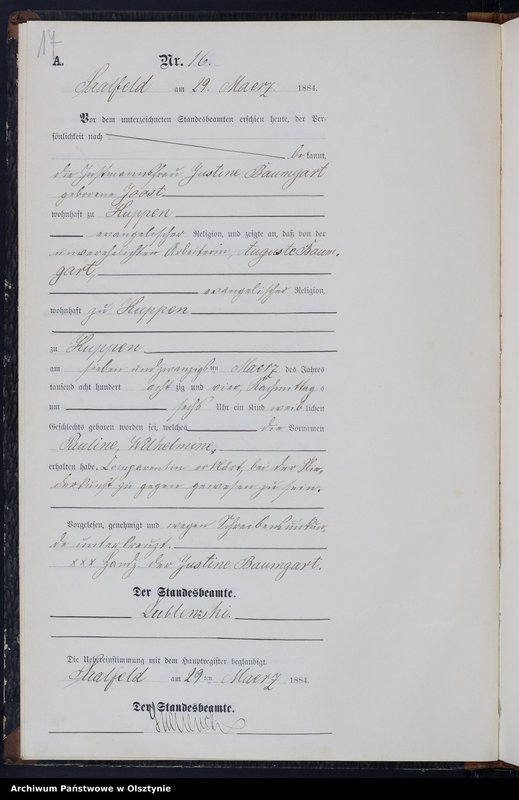 17
A.
Nr. 16.
Saalfeld am 29. Maerz 1884.
Vor dem unterzeichneten Standesbeamten erschien heute, der Per-
sönlichkeit nach
bekannt,
die Instmannsfrau Justine Baumgart
geborene Joost
wohnhaft zu Kuppen
evangelischer Religion, und zeigte an, daß von der
unverehelichten Arbeiterin, Auguste Baum-
gart,
evangelischer Religion,
wohnhaft zu Kuppen
zu Kuppen
am sieben und zwanzigsten Maerz des Jahres
tausend acht hundert acht zig und vier, Nachmittags
um sechs Uhr ein Kind weiblichen
Geschlechts geboren worden sei, welches die Vornamen
Pauline, Wilhelmine,
erhalten habe. Comparentin erklärt, bei der Nie-
derkunft zu gegen gewesen zu sein.
Vorgelesen, genehmigt und wegen Schreibensunkun-
de unterkreuzt.
xxx Handz. der Justine Baumgart.
Der Standesbeamte.
Lublenski.
Die Uebereinstimmung mit dem Hauptregister beglaubigt.
Saalfeld am 29ten Maerz 1884.
Der Standesbeamte.
Archiwum Państwowe w Olsztynie